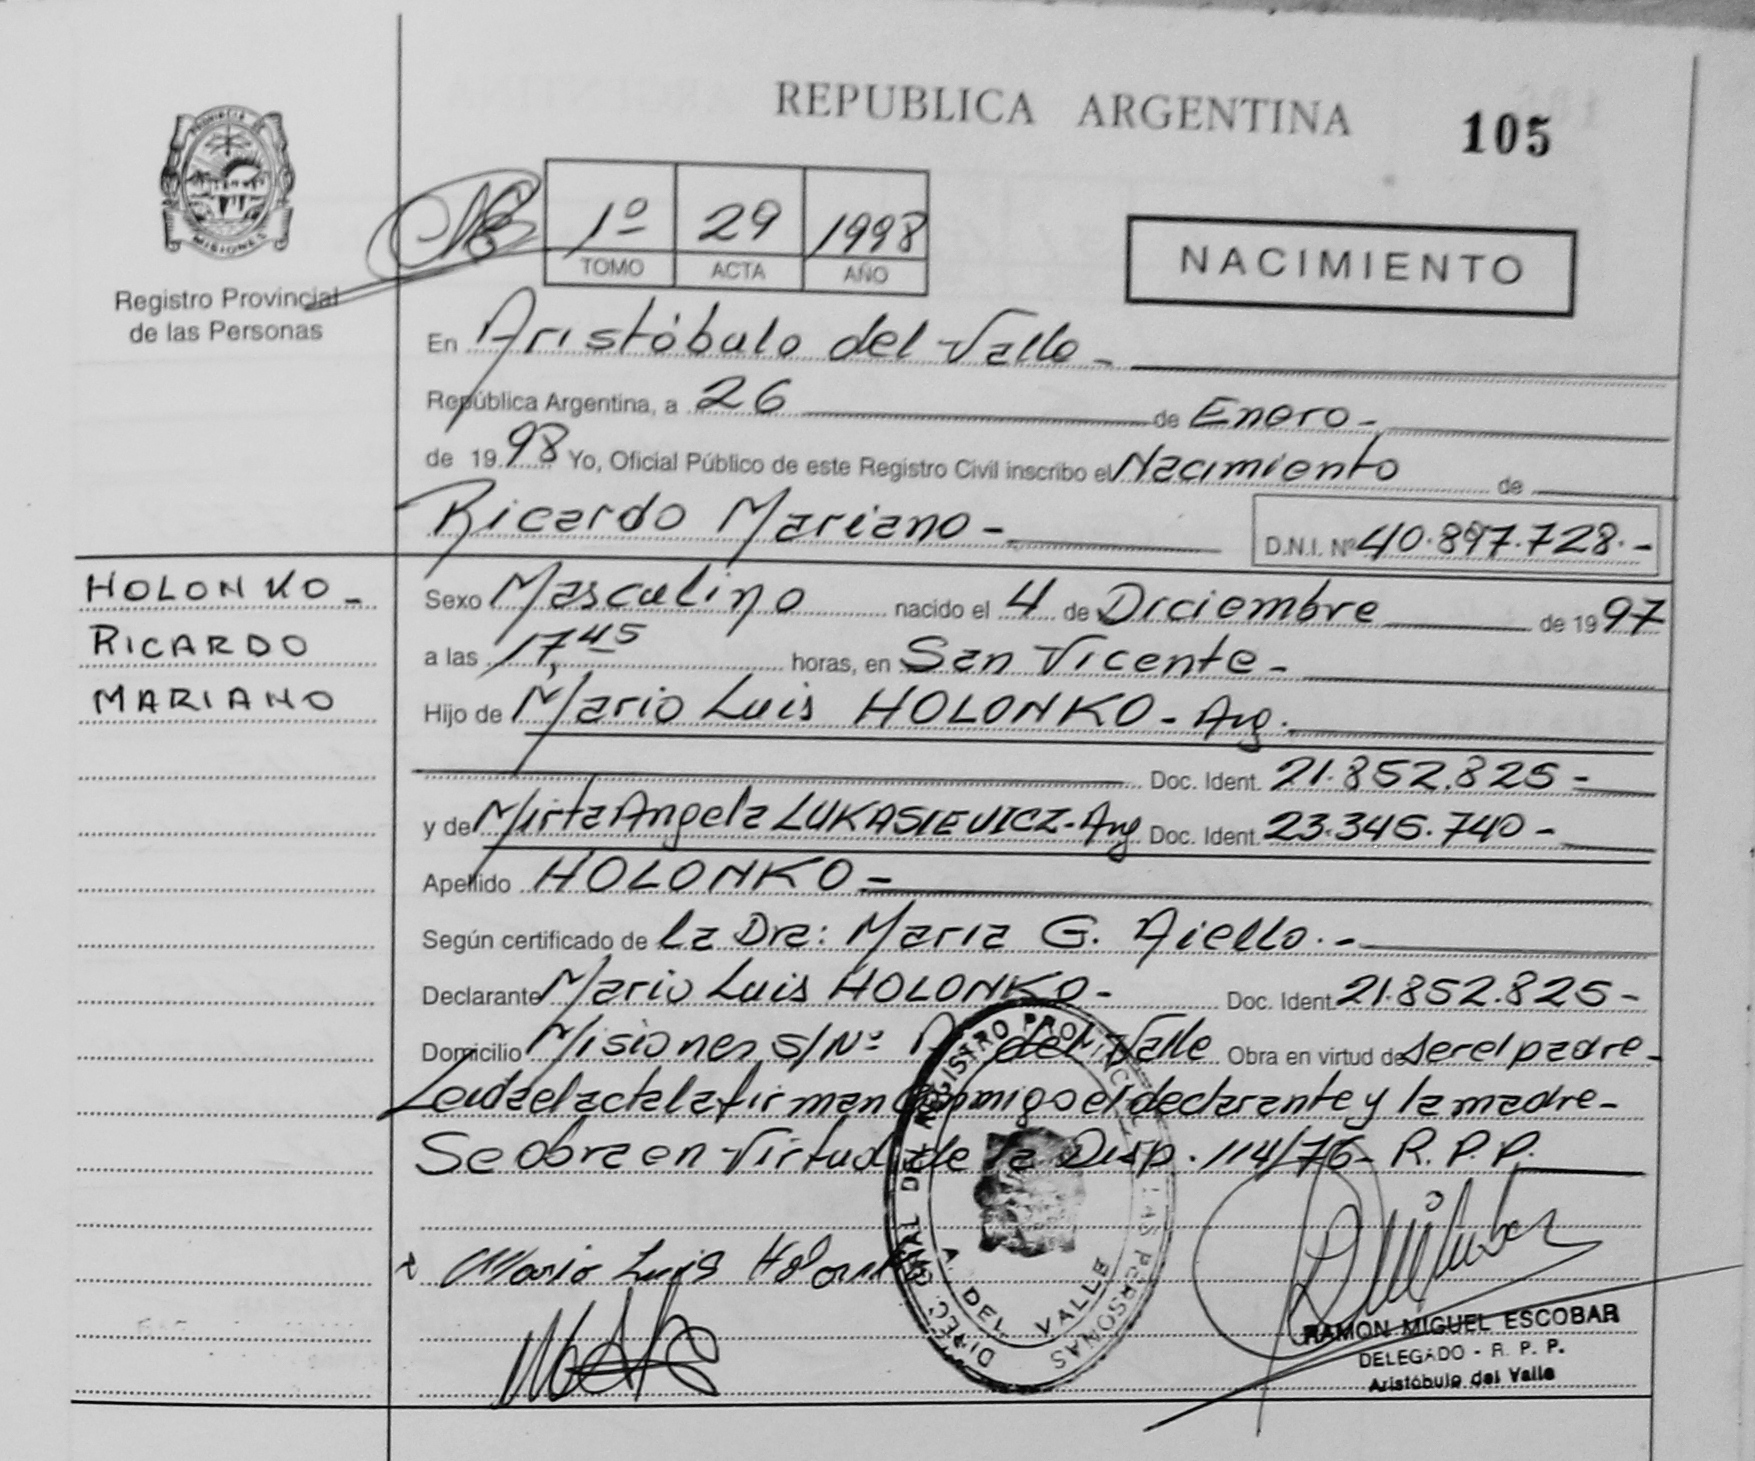 REPUBLICA ARGENTINA
105
PROVINCIA DE
MISIONES
Registro Provincial
de las Personas
1º 29 1998
TOMO ACTA AÑO
NACIMIENTO
En Aristóbulo del Valle -
República Argentina, a 26 de Enero -
de 19 98 Yo, Oficial Público de este Registro Civil inscribo el Nacimiento de
Ricardo Mariano - D.N.I. Nº 40.897.728.-
HOLONKO -
RICARDO
MARIANO
Sexo Masculino nacido el 4 de Diciembre de 19 97
a las 17,45 horas, en San Vicente -
Hijo de Mario Luis HOLONKO - Arg.
Doc. Ident. 21.852.825 -
y de Mirta Angela LUKASIEVICZ - Arg Doc. Ident. 23.345.740 -
Apellido HOLONKO -
Según certificado de la Dra: Maria G. Aiello. -
Declarante Mario Luis HOLONKO - Doc. Ident. 21.852.825 -
Domicilio Misiones s/Nº A. del Valle Obra en virtud de ser el padre -
Leida el acta la firman conmigo el declarante y la madre -
Se obra en virtud de la Disp. 114/76 - R.P.P.
Mario Luis Holonko
DIREC. GRAL DEL REGISTRO PROVINCIAL DE LAS PERSONAS
A. DEL VALLE
RAMON MIGUEL ESCOBAR
DELEGADO - R. P. P.
Aristóbulo del Valle